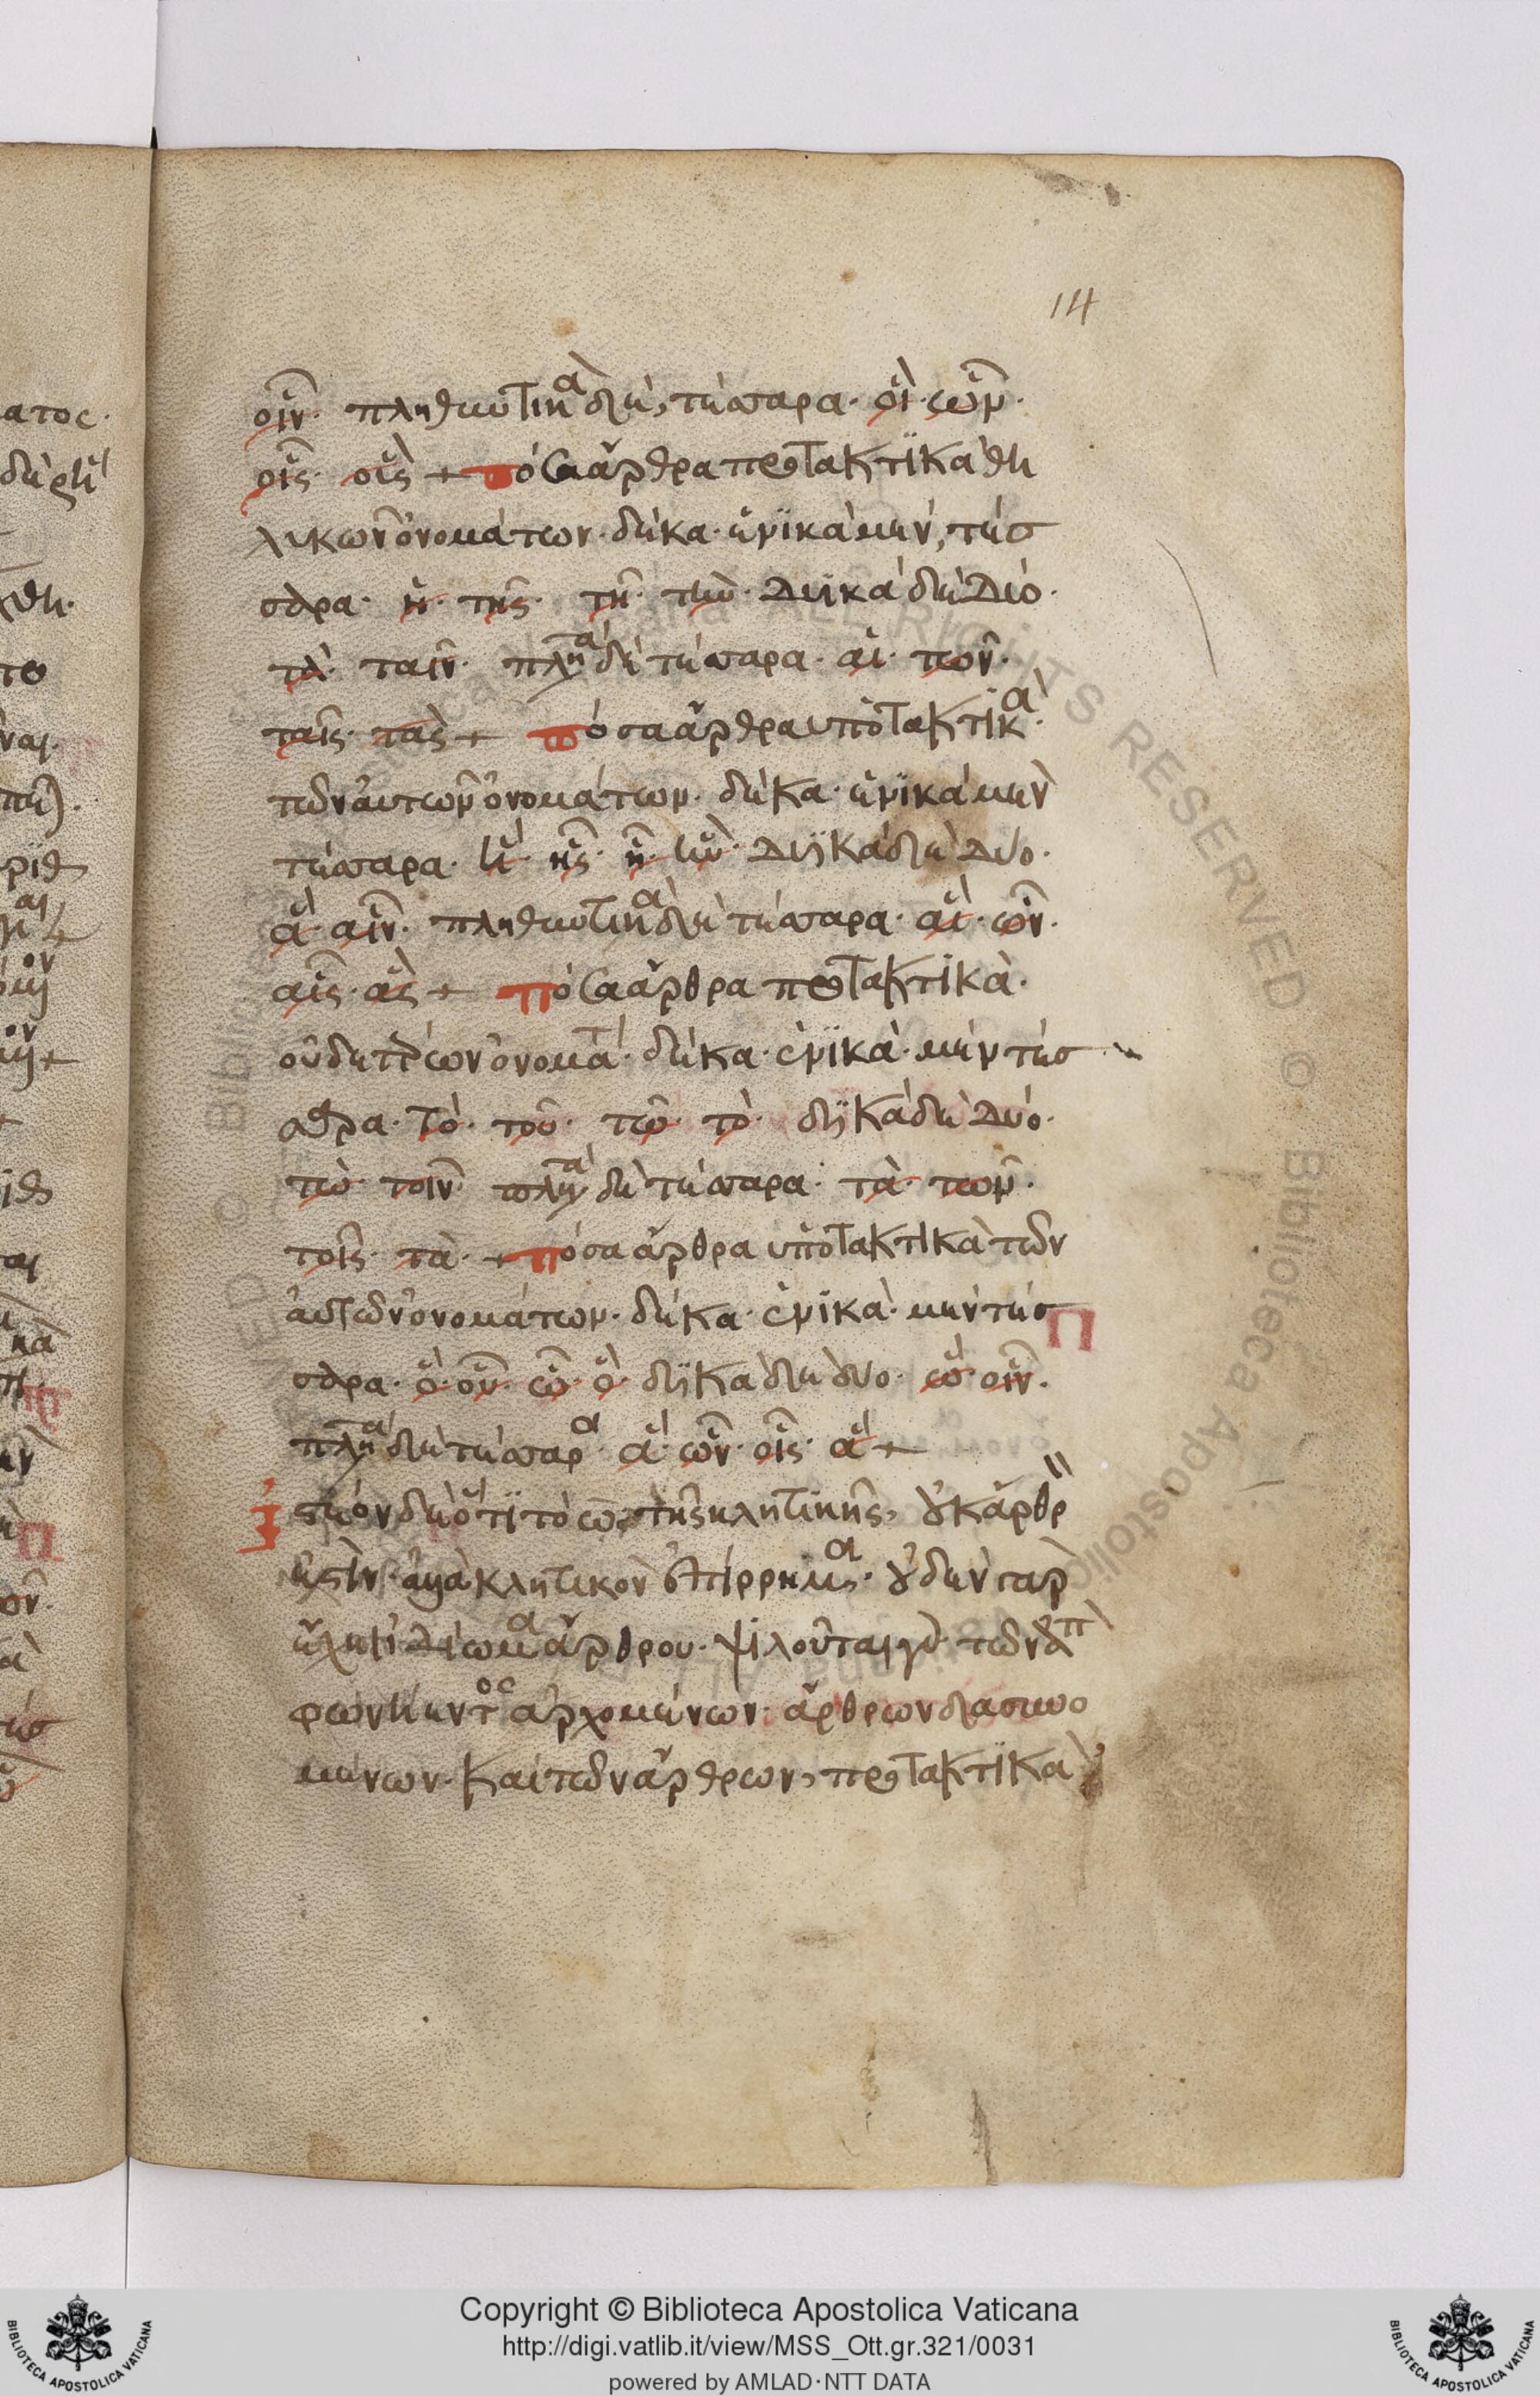 14
οἷν· πληθυντικὰ δὲ, τέσσαρα· οἵ· ὧν·
οἷς· οὕς + πόσα ἄρθρα προτακτικὰ θη
λυκῶν ὀνομάτων· δέκα· ἑνϊκὰ μὲν, τέσ
σαρα· ἡ· τῆς· τῆ· τὴν· Δυϊκὰ δὲ Δύο·
τὰ· ταῖν· πλη^τὰ δὲ τέσσαρα· αἱ· τῶν·
ταῖς· τὰς + πόσα ἄρθρα υποτακτϊκὰ·
τῶν ἀυτῶν ὀνομάτων· δέκα· ἑνϊκὰ μὲν
τέσσαρα· ἥ· ἧς· ᾗ· ἥν· Δυϊκὰ δὲ Δύο·
ἅ· αἷν· πληθυντικὰ δὲ τέσσαρα· αἵ· ὧν·
αἷς· ἅς + πόσα ἄρθρα προτακτϊκὰ·
οὐδετέρων ὀνομάτ· δέκα· ἑνϊκὰ· μὲν τέσ
σαρα· τὸ· τοῦ· τῶ· τὸ· δυϊκὰ δὲ Δύο·
τὼ· τοῖν· πλη^τὰ δὲ τέσσαρα· τὰ· τῶν·
τοῖς· τὰ· + πόσα ἄρθρα υποτακτικὰ τῶν
ἀυτῶν ὀνομάτων· δέκα· ἑνϊκὰ· μὲν τέσ
σαρα· ὅ· οὗ· ᾧ· ὅ· δυϊκὰ δὲ δύο· ὥ· οἷν·
πλη^τὰ δὲ τέσσαρα· ἅ· ὧν· οἷς· ἅ +
Ἰστέον δὲ ὅτϊ τὸ ὦ τῆς κλητικῆς, οὐκ ἄρθρ
ἐστὶν· ἀλλὰ κλητικὸν ἐπίρρημα· οὐδὲν γὰρ
ἔχει ἰδίωμα ἄρθρου· ψιλοῦται γὰρ· τῶν ἀπ
φωνήεντος ἀρχομένων· ἄρθρων δασυνο
μένων· καὶ τῶν ἄρθρων, προτακτϊκὰ
Copyright © Biblioteca Apostolica Vaticana
http://digi.vatlib.it/view/MSS_Ott.gr.321/0031
powered by AMLAD·NTT DATA